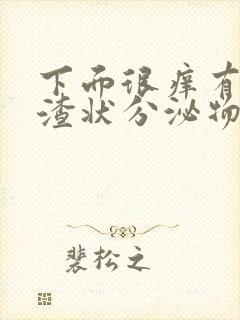 下面很痒有
渣状分泌物
裴松之